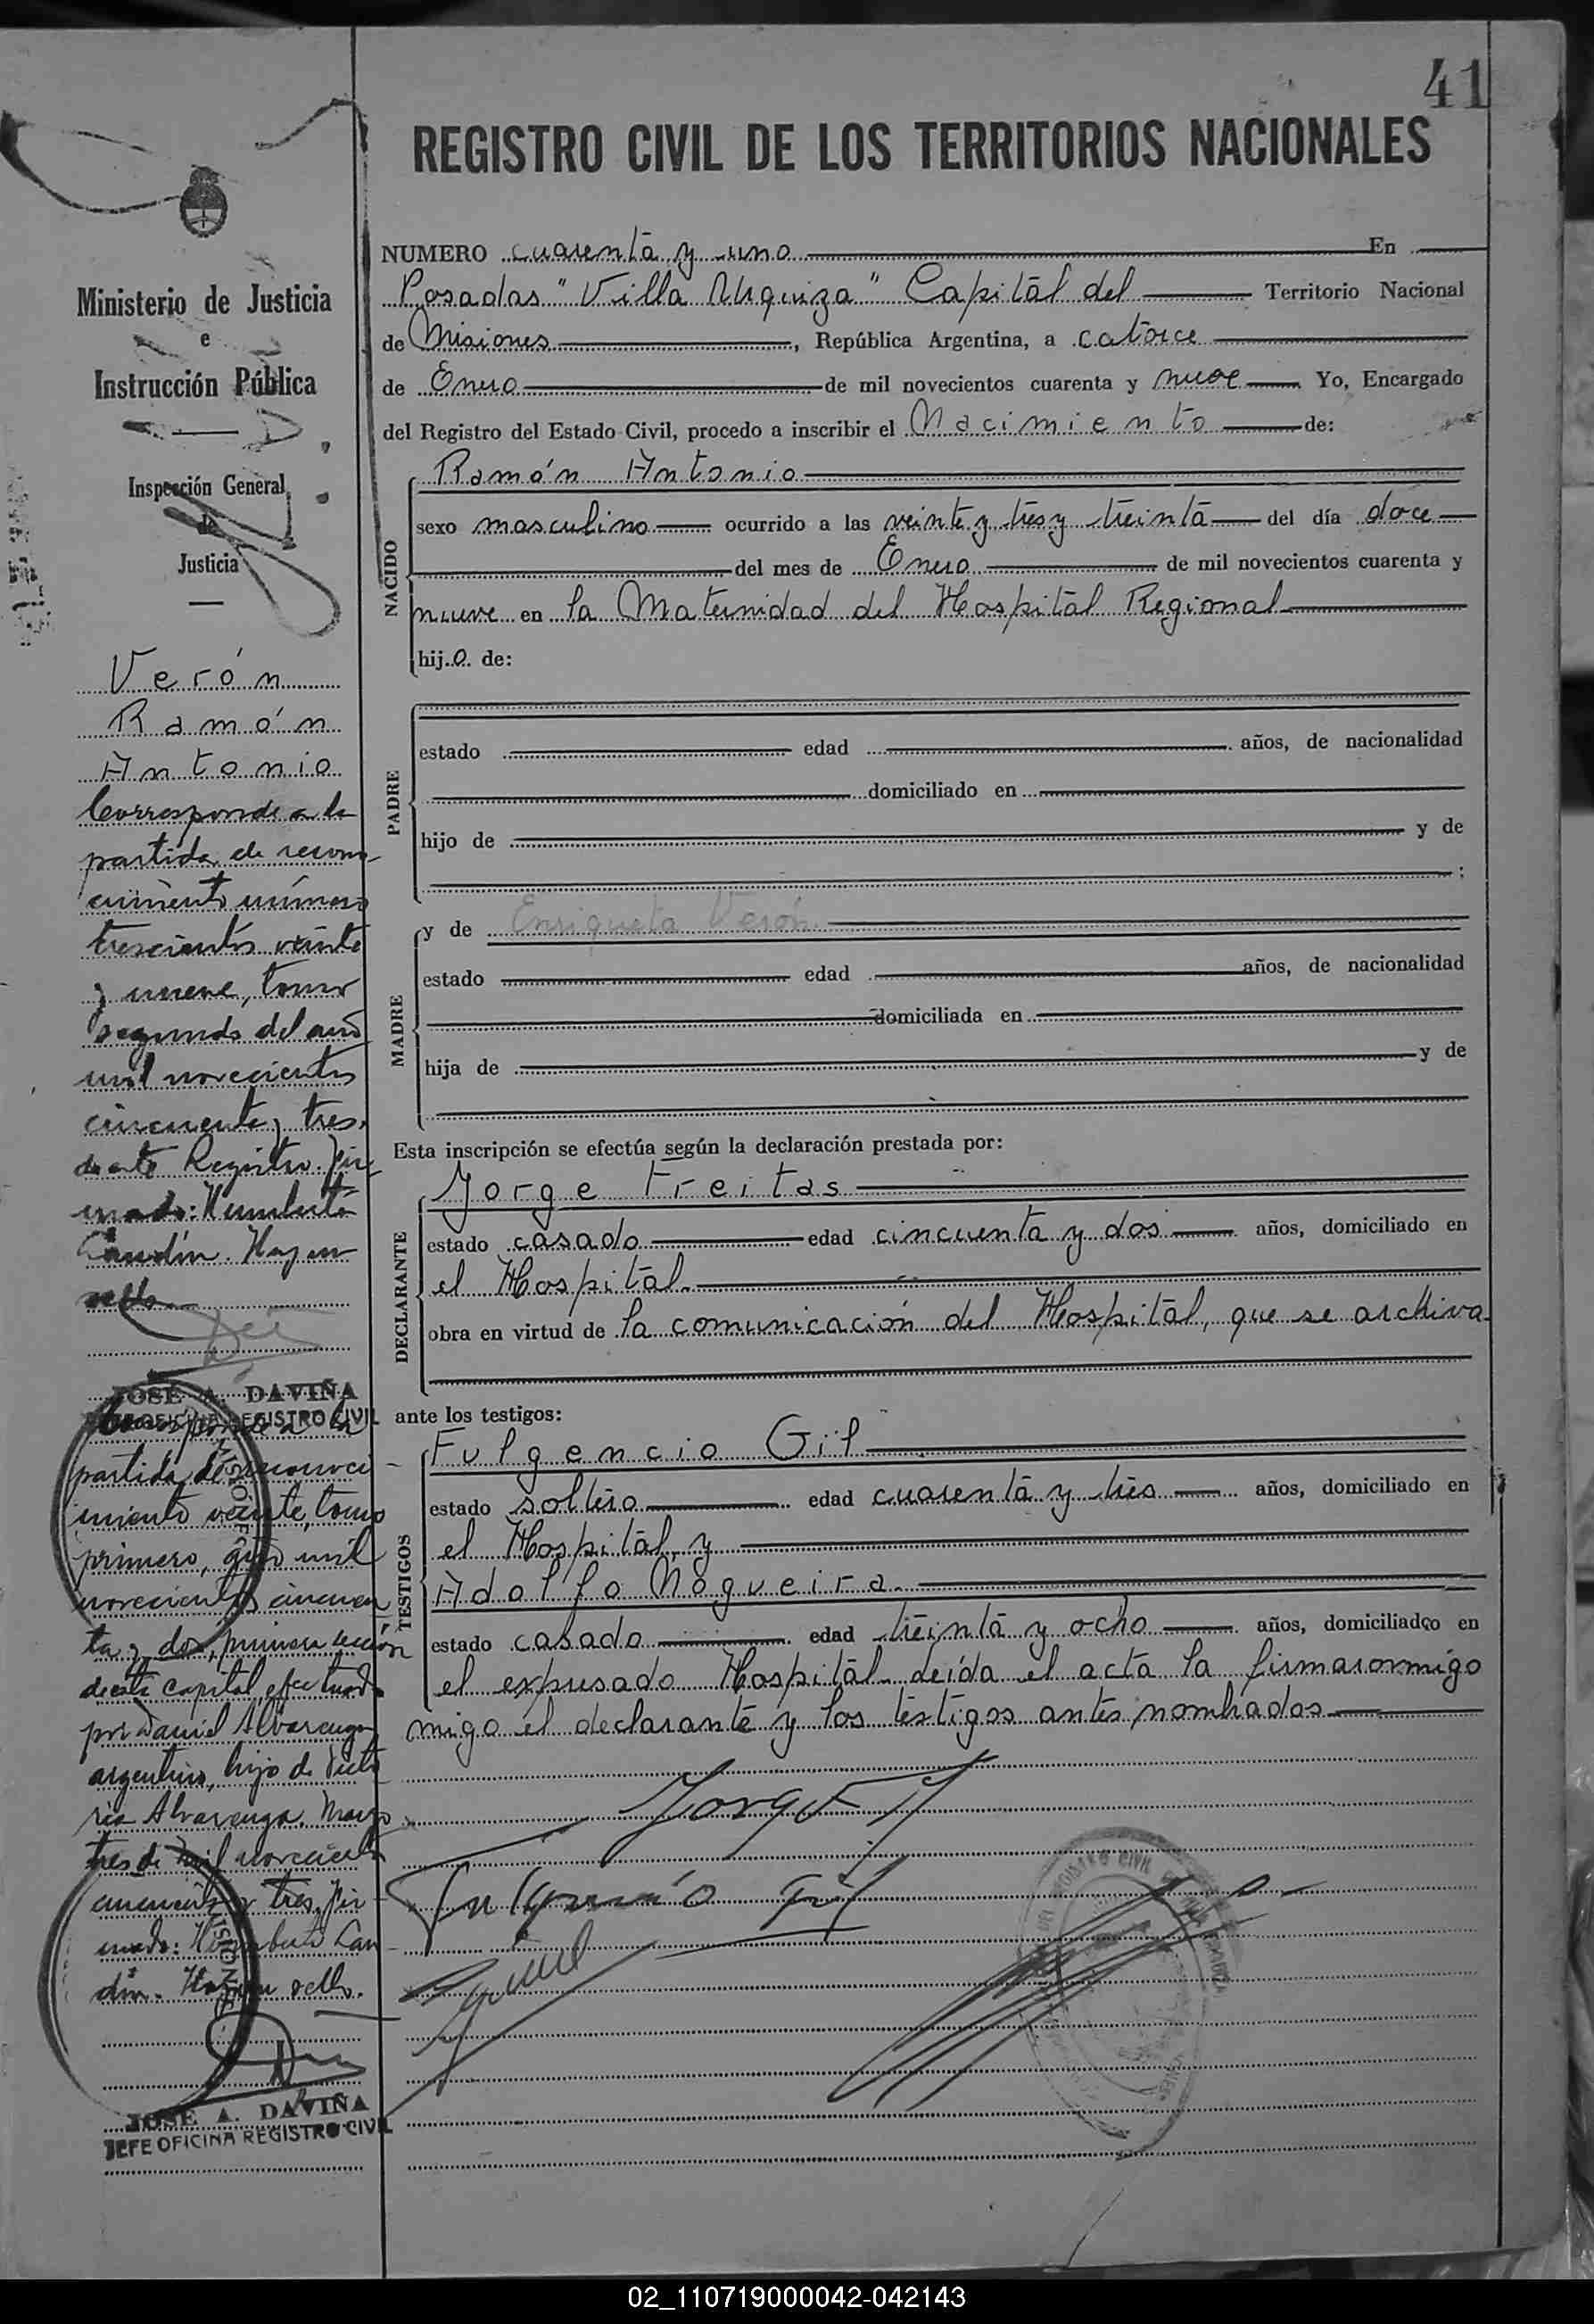 41
REGISTRO CIVIL DE LOS TERRITORIOS NACIONALES
Ministerio de Justicia
e
Instrucción Pública
Inspección General
de
Justicia
Verón
Ramón
Antonio
Corresponde a la
partida de recono-
cimiento número
trescientos veinte
y nueve, tomo
segundo del año
mil novecientos
cincuenta y tres,
de este Registro. Fir-
mado: Humberto
Candín. Hay un
sello.
JOSÉ A. DAVIÑA
JEFE OFICINA REGISTRO CIVIL
MISIONES
Corresponde a la
partida de reconoci-
miento veinte, tomo
primero, año mil
novecientos cincuen
ta y dos, primera sección
de esta capital, efectuado
por Daniel Alvarenga,
argentino, hijo de Victo
ria Alvarenga. Marzo
tres de mil novecientos
cincuenta y tres. Fir-
mado: Humberto Can-
dín. Hay un sello.
MISIONES
JOSÉ A. DAVIÑA
JEFE OFICINA REGISTRO CIVIL
NUMERO cuarenta y uno En
Posadas "Villa Urquiza" Capital del Territorio Nacional
de Misiones, República Argentina, a catorce
de Enero de mil novecientos cuarenta y nueve Yo, Encargado
del Registro del Estado Civil, procedo a inscribir el Nacimiento de:
NACIDO
Ramón Antonio
sexo masculino ocurrido a las veinte y tres y treinta del día doce
del mes de Enero de mil novecientos cuarenta y
nueve en la Maternidad del Hospital Regional
hijo de:
PADRE
estado edad años, de nacionalidad
domiciliado en
hijo de y de
;
MADRE
y de Enriqueta Verón
estado edad años, de nacionalidad
domiciliada en
hija de y de
Esta inscripción se efectúa según la declaración prestada por:
DECLARANTE
Jorge Freitas
estado casado edad cincuenta y dos años, domiciliado en
el Hospital.
obra en virtud de la comunicación del Hospital, que se archiva.
ante los testigos:
TESTIGOS
Fulgencio Gil
estado soltero edad cuarenta y tres años, domiciliado en
el Hospital, y
Adolfo Nogueira.
estado casado edad treinta y ocho años, domiciliado en
el expresado Hospital. leída el acta la firmaron migo
migo el declarante y los testigos antes nombrados
Jorge F
Fulgencio Gil
02_110719000042-042143